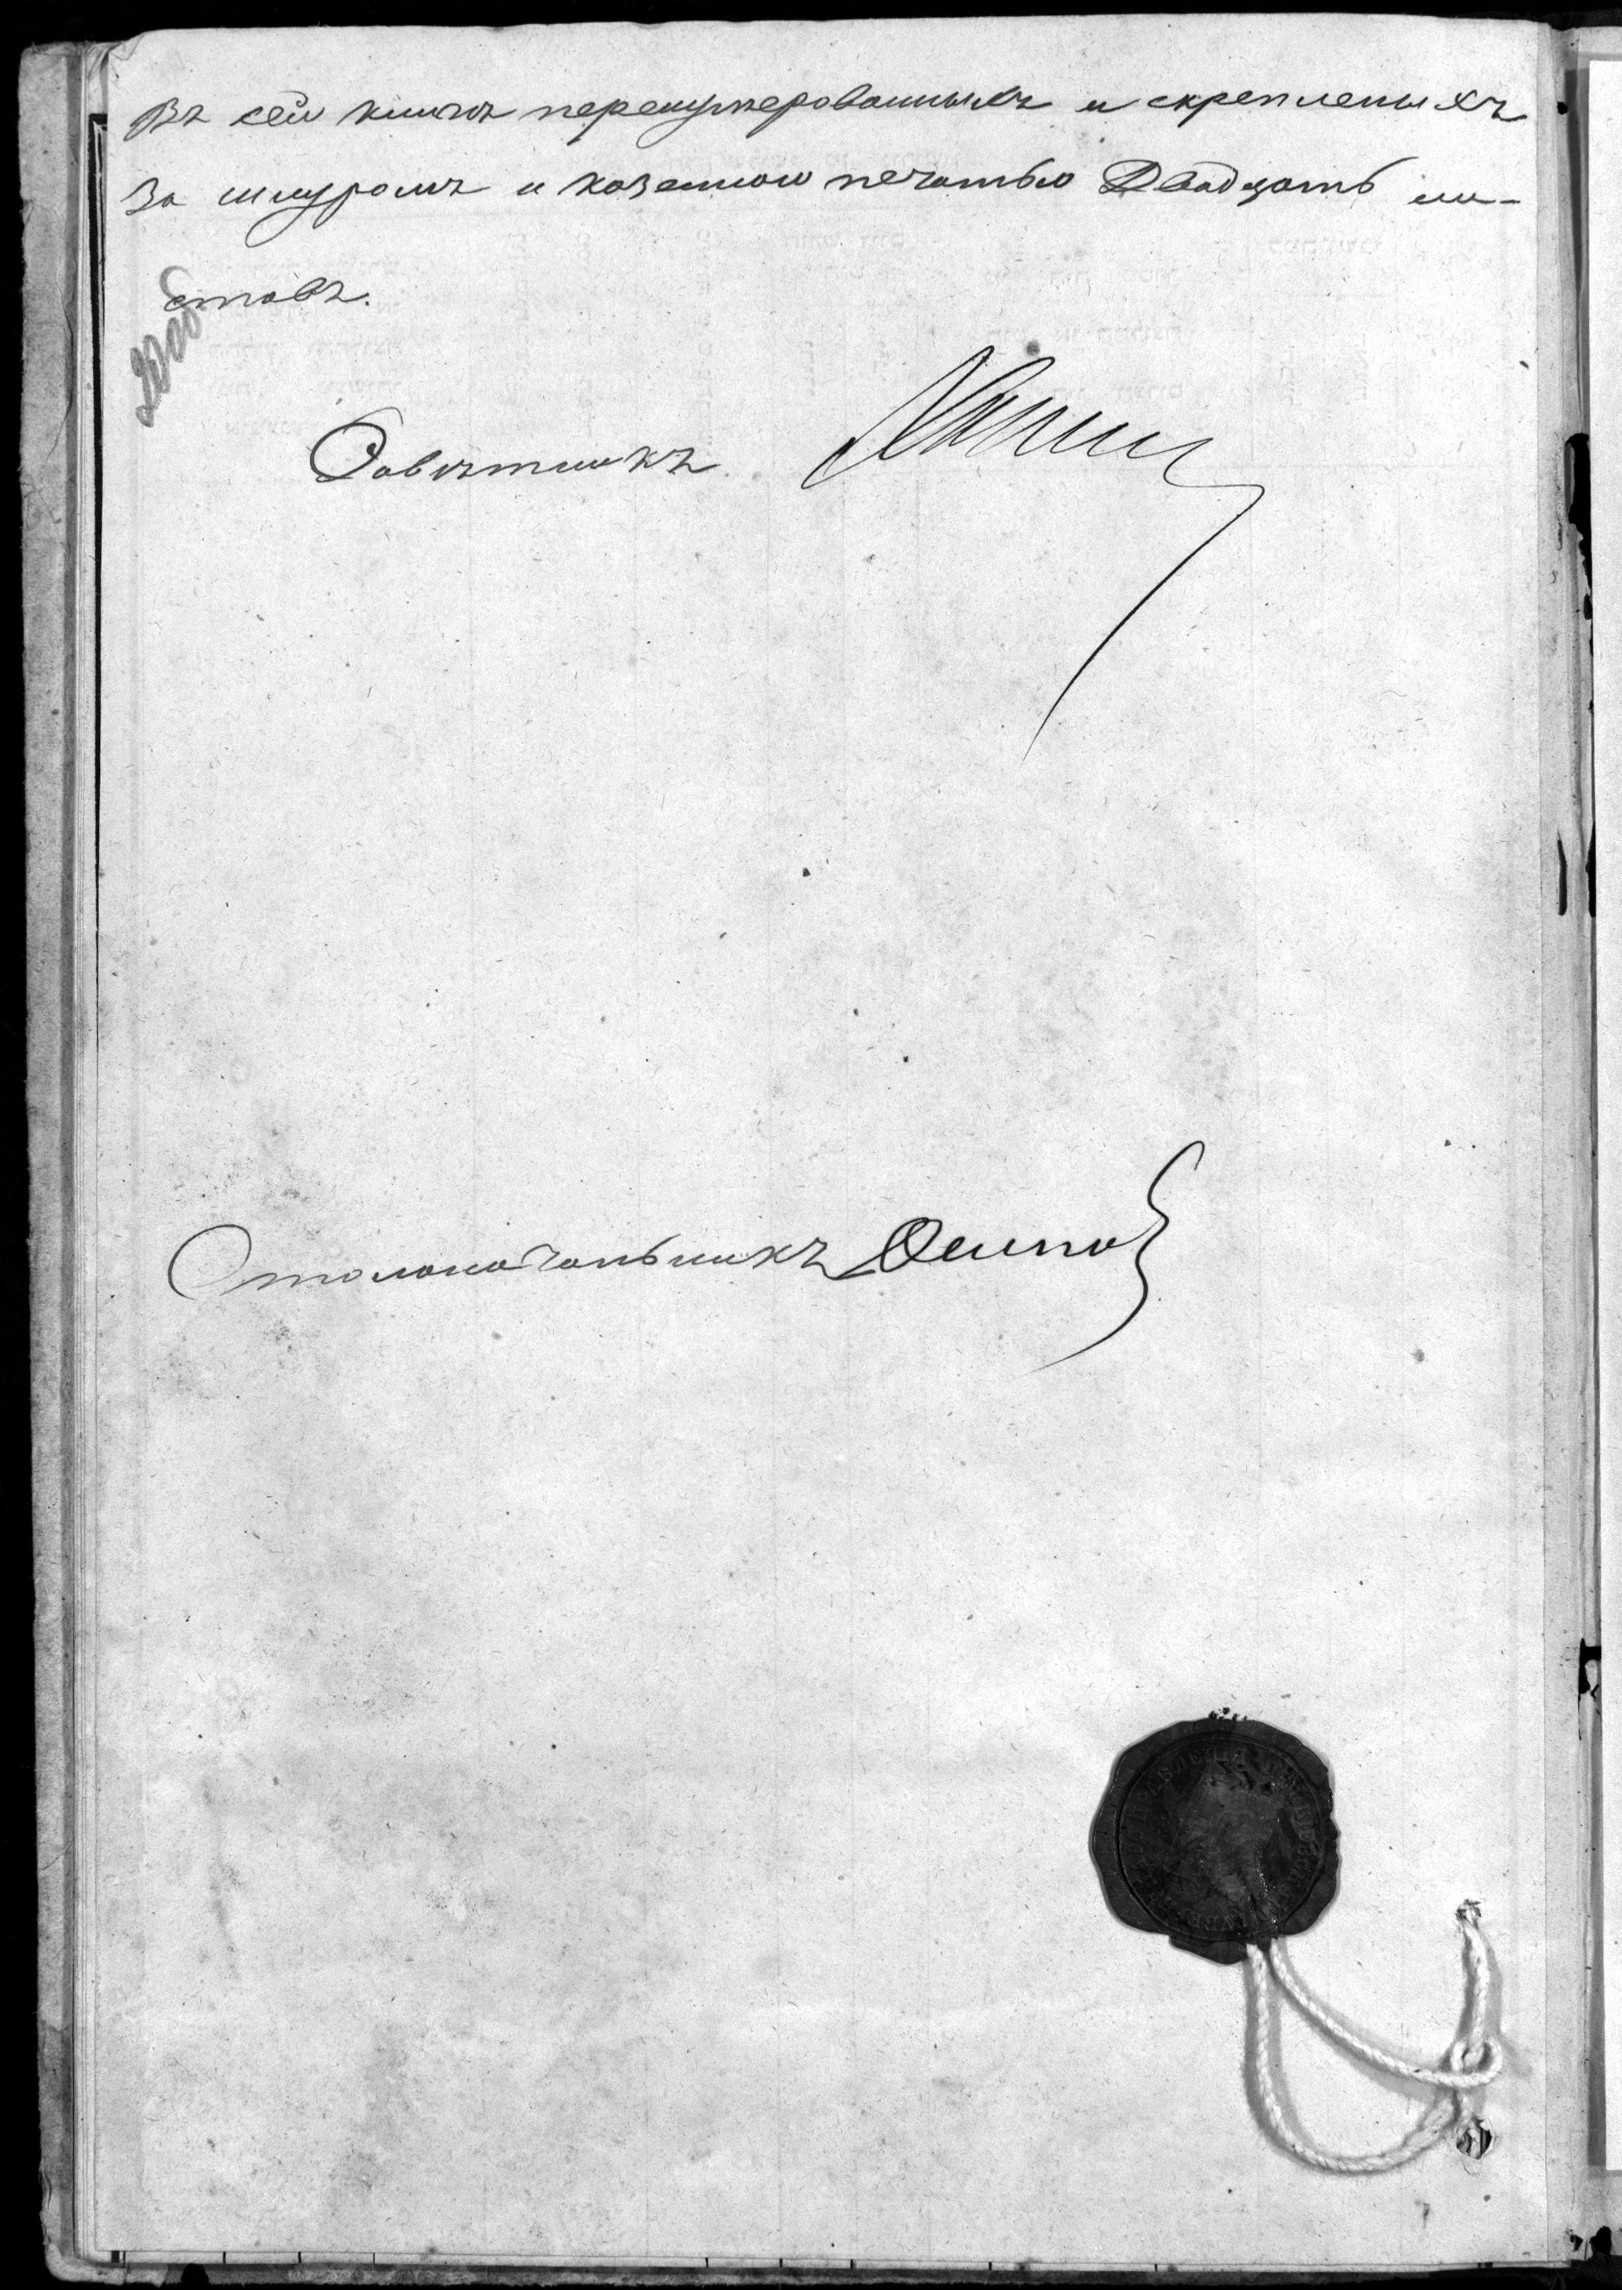 Въ сей книгѣ перенумерованныхъ и скрепленыхъ
за шнуромъ и казенною печатью Двадцать ли-
стовъ.
20 об
Совѣтникъ
Столоначальникъ Осипов